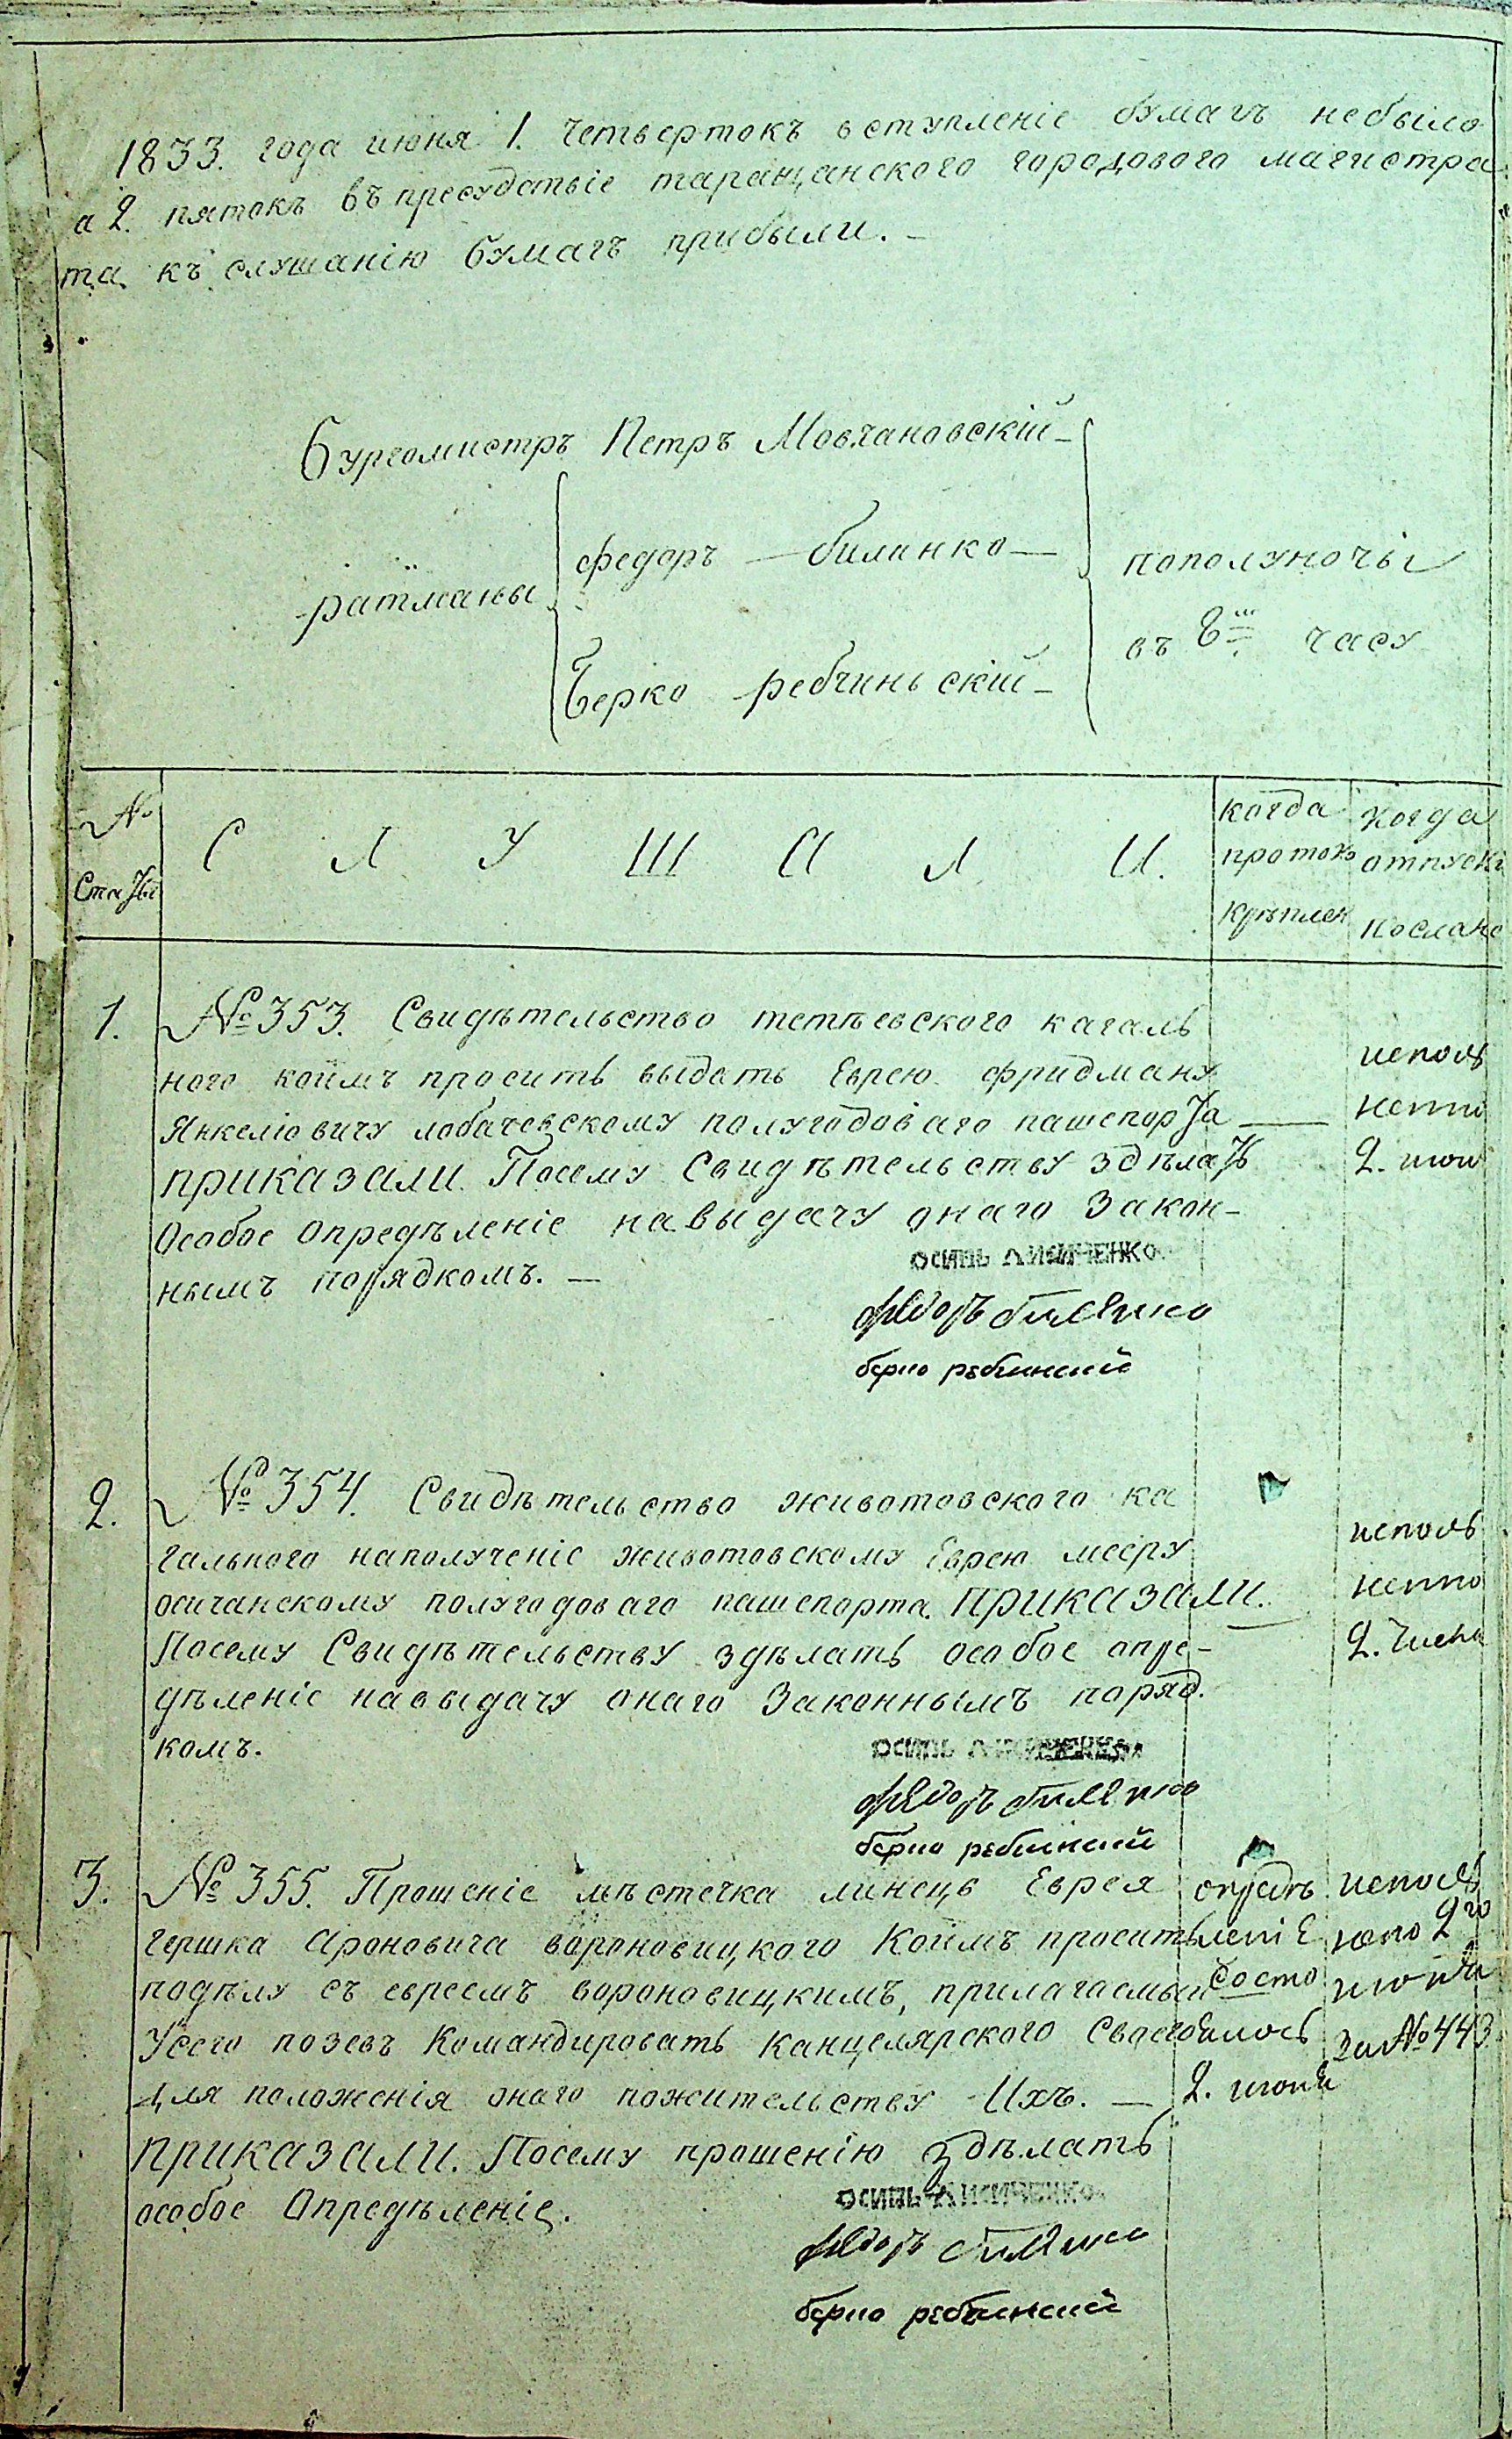 1833. года июня 1. Четвертокъ вступленіе бумагъ небыло
а 2. пятокъ въ пресудствіе таращанского городового магистра
та къ слушанію бумагъ прибыли. —
Бургомистръ Петръ Мовчановскій —
ратманы
федоръ — билинко —
Берко ребчиньскій —
пополуночы
въ 8 часу
№ Статьи
С Л У Ш А Л И.
когда протоко крѣплен
когда отпускъ послано
1.
№ 353. Свидѣтельство тетѣевского кагаль
ного коимъ проситъ выдать Еврею фридману
Янкеліовичу лобачевскому полугодоваго пашепорта —
приказали. Посему Свидѣтельству здѣлать
Особое Опредѣленіе навыдачу онаго Закон-
нымъ порядкомъ. —
исполь
нено
2. июн
осипь Ликиченко
фЕдоръ билЕнко
берко ребчинский
2.
№ 354. Свидѣтельство животовского ка
гального наполученіе животовскому Еврею мееру
осичанскому полугодоваго пашепорта. приказали.
Посему Свидѣтельству здѣлать особое опре-
дѣленіе навыдачу онаго Законнымъ поряд.
комъ.
исполь
нено
2. Числа
осипь Ликиченко
фЕдоръ билЕнко
берко ребчинский
3.
№ 355. Прошеніе мѣстечка линецъ Еврея
гершка Ароновича вороновицкого Коимъ проситъ
подѣлу съ евреемъ вороновицкимъ, прилагаемый
Усего позевъ Командировать канцелярского Своего
для положенія онаго пожительству Ихъ. —
приказали. Посему прошенію здѣлать
особое Опредѣленіе.
опредѣ
леніЕ
состо
ялось
2. июня
исполь
нено 2го
июня
за № 443
осипь Ликиченко
фЕдоръ билЕнко
берко ребчинский